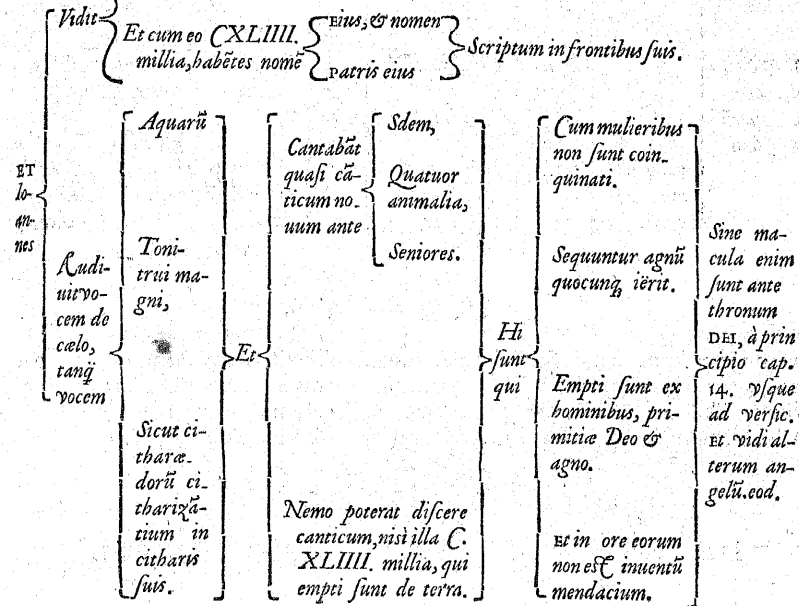 Vidit
Et cum eo CXLIIII.
millia, habẽtes nomẽ
Eius, & nomen
Patris eius
Scriptum in frontibus suis.
ET
Io-
an-
nes
Audi-
uit vo-
cem de
cælo,
tanq̃
vocem
Aquarũ
Toni-
trui ma-
gni,
Sicut ci-
tharæ-
dorũ ci-
tharizã-
tium in
citharis
suis.
Et
Cantabãt
quasi cã-
ticum no-
uum ante
Sdem,
Quatuor
animalia,
Seniores.
Nemo poterat discere
canticum, nisi illa C.
XLIIII. millia, qui
empti sunt de terra.
Hi
sunt
qui
Cum mulieribus
non sunt coin-
quinati.
Sequuntur agnũ
quocunq; ierit.
Empti sunt ex
hominibus, pri-
mitiæ Deo &
agno.
Et in ore eorum
non est inuentũ
mendacium.
Sine ma-
cula enim
sunt ante
thronum
DEI, à prin
cipio cap.
14. vsque
ad versic.
Et vidi al-
terum an-
gelũ. eod.